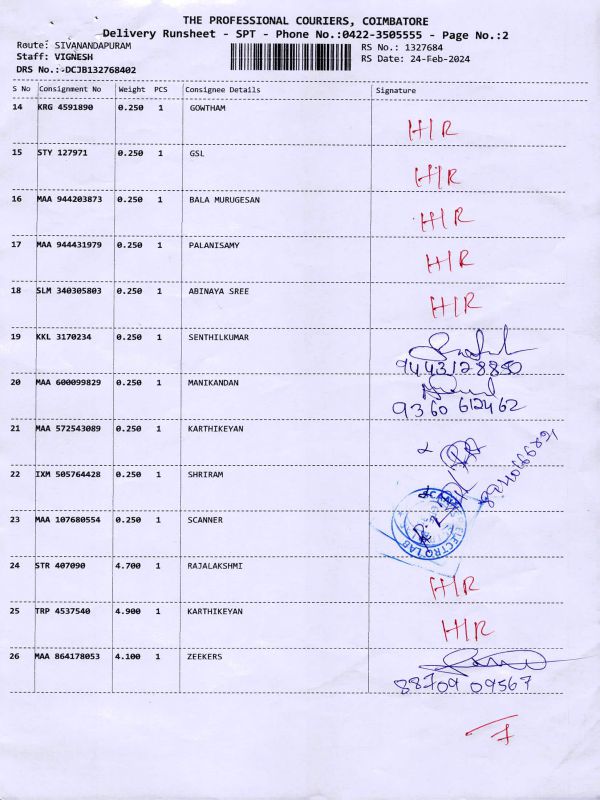 THE PROFESSIONAL COURIERS, COIMBATORE
Delivery Runsheet - SPT - Phone No.:0422-3505555 - Page No.:2
Route: SIVANANDAPURAM RS No.: 1327684
Staff: VIGNESH RS Date: 24-Feb-2024
DRS No.:-DCJB132768402
S No Consignment No Weight PCS Consignee Details Signature
14 KRG 4591890 0.250 1 GOWTHAM
H/R
15 STY 127971 0.250 1 GSL
H/R
16 MAA 944203873 0.250 1 BALA MURUGESAN
H/R
17 MAA 944431979 0.250 1 PALANISAMY
H/R
18 SLM 340305803 0.250 1 ABINAYA SREE
H/R
19 KKL 3170234 0.250 1 SENTHILKUMAR
9443128850
20 MAA 600099829 0.250 1 MANIKANDAN
9360 612462
21 MAA 572543089 0.250 1 KARTHIKEYAN
22 IXM 505764428 0.250 1 SHRIRAM
23 MAA 107680554 0.250 1 SCANNER
ELECTRO LAB
24 STR 407090 4.700 1 RAJALAKSHMI
H/R
25 TRP 4537540 4.900 1 KARTHIKEYAN
H/R
26 MAA 864178053 4.100 1 ZEEKERS
88709 09567
7